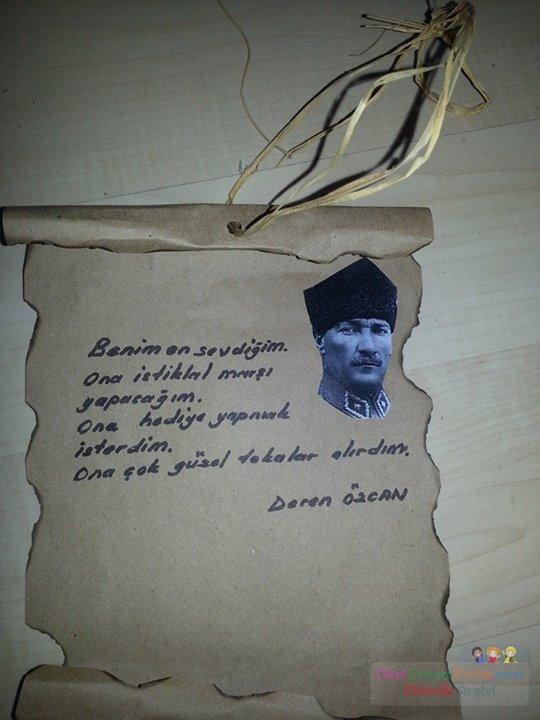 Benim en sevdiğim.
Ona istiklal marşı
yapacağım.
Ona hediye yapmak
isterdim.
Ona çok güzel tokalar alırdım.
Deren ÖZCAN
Etkinlik Arşivi